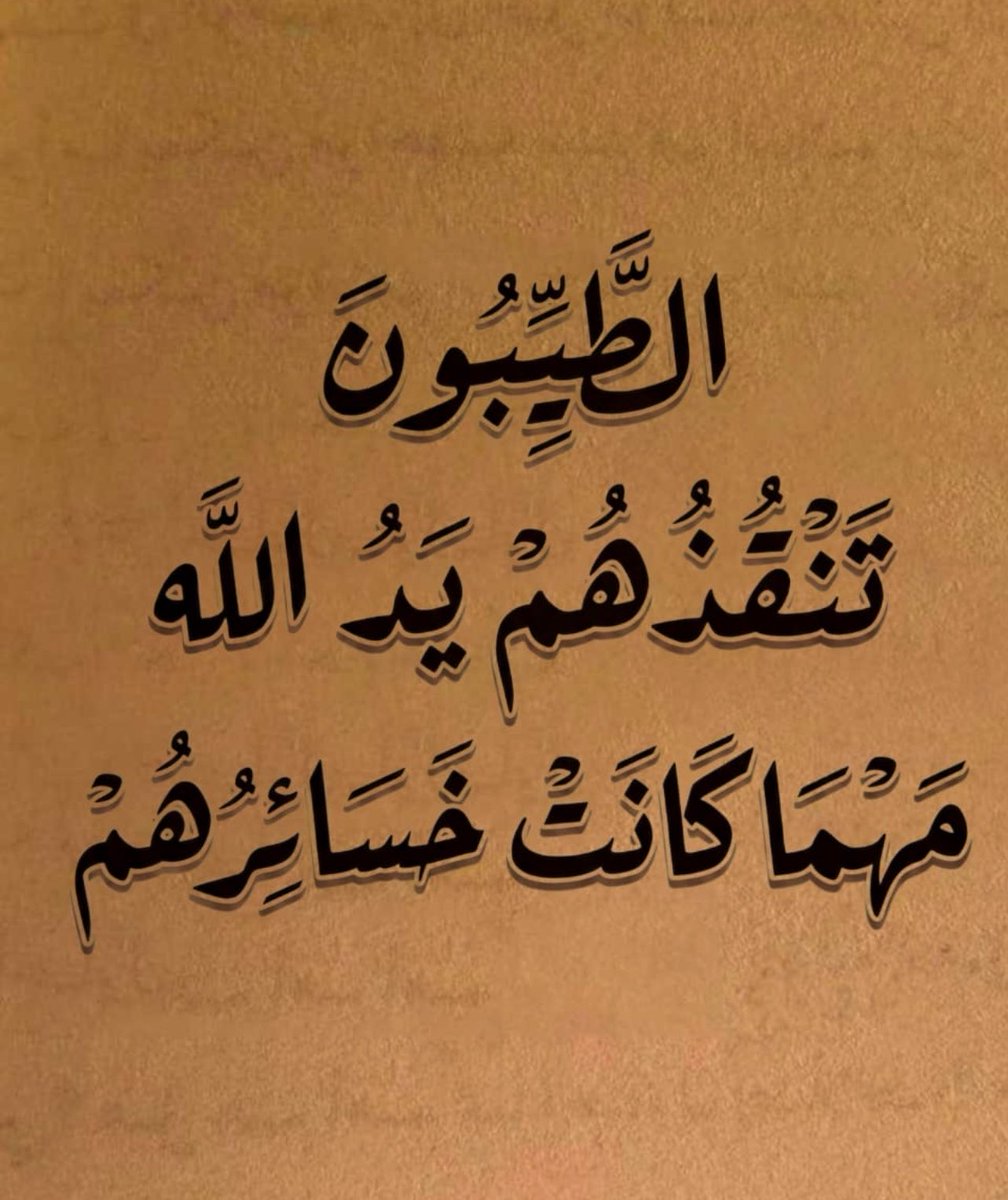 الطَّيِّبُونَ
تَنْقُذُهُمْ يَدُ اللَّه
مَهْمَا كَانَتْ خَسَائِرُهُمْ